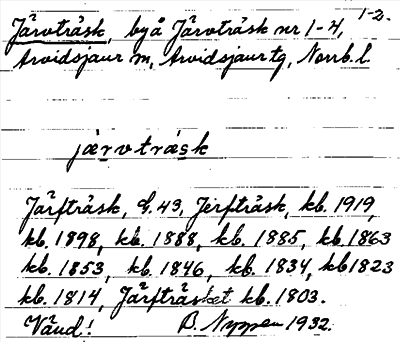 1-2.
Järvträsk, byå Järvträsk nr 1-4,
Arvidsjaur sn, Arvidsjaur tg, Norrb. l.
järvträsk
Järfträsk, G. 43, Jerfträsk, kb. 1919,
kb. 1898, kb. 1888, kb. 1885, kb. 1863
kb. 1853, kb. 1846, kb. 1834, kb 1823
kb. 1814, Järfträsket kb. 1803.
Vänd! B. Nyppen 1932.